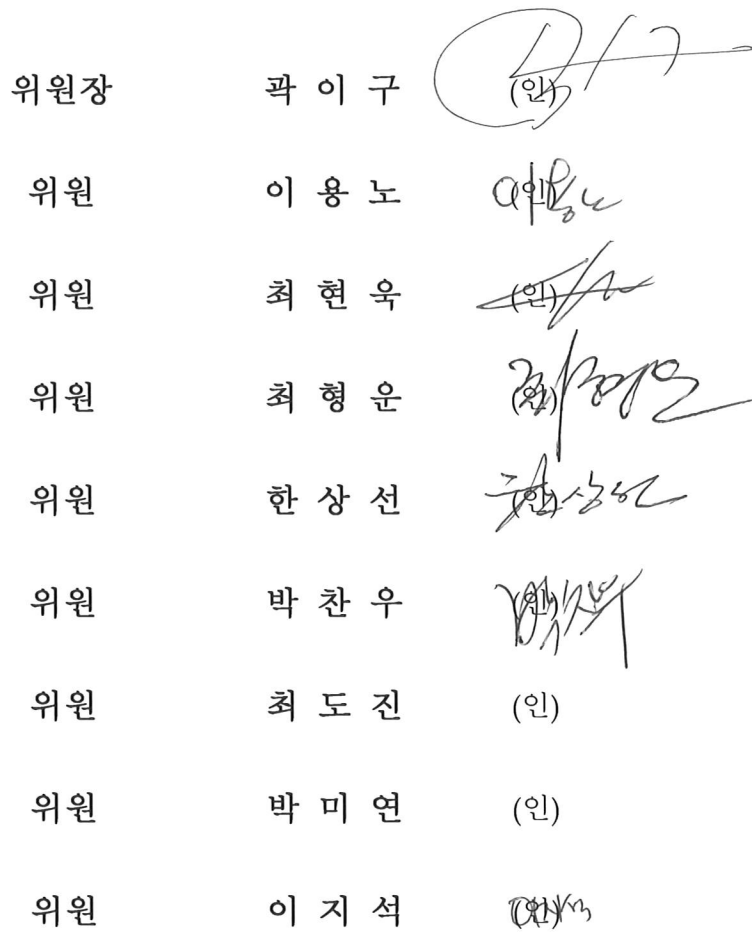 위원장 곽 이 구 (인)
위원 이 용 노 (인) 이용노
위원 최 현 욱 (인)
위원 최 형 운 (인) 최형운
위원 한 상 선 (인) 한상선
위원 박 찬 우 (인)
위원 최 도 진 (인)
위원 박 미 연 (인)
위원 이 지 석 (인)